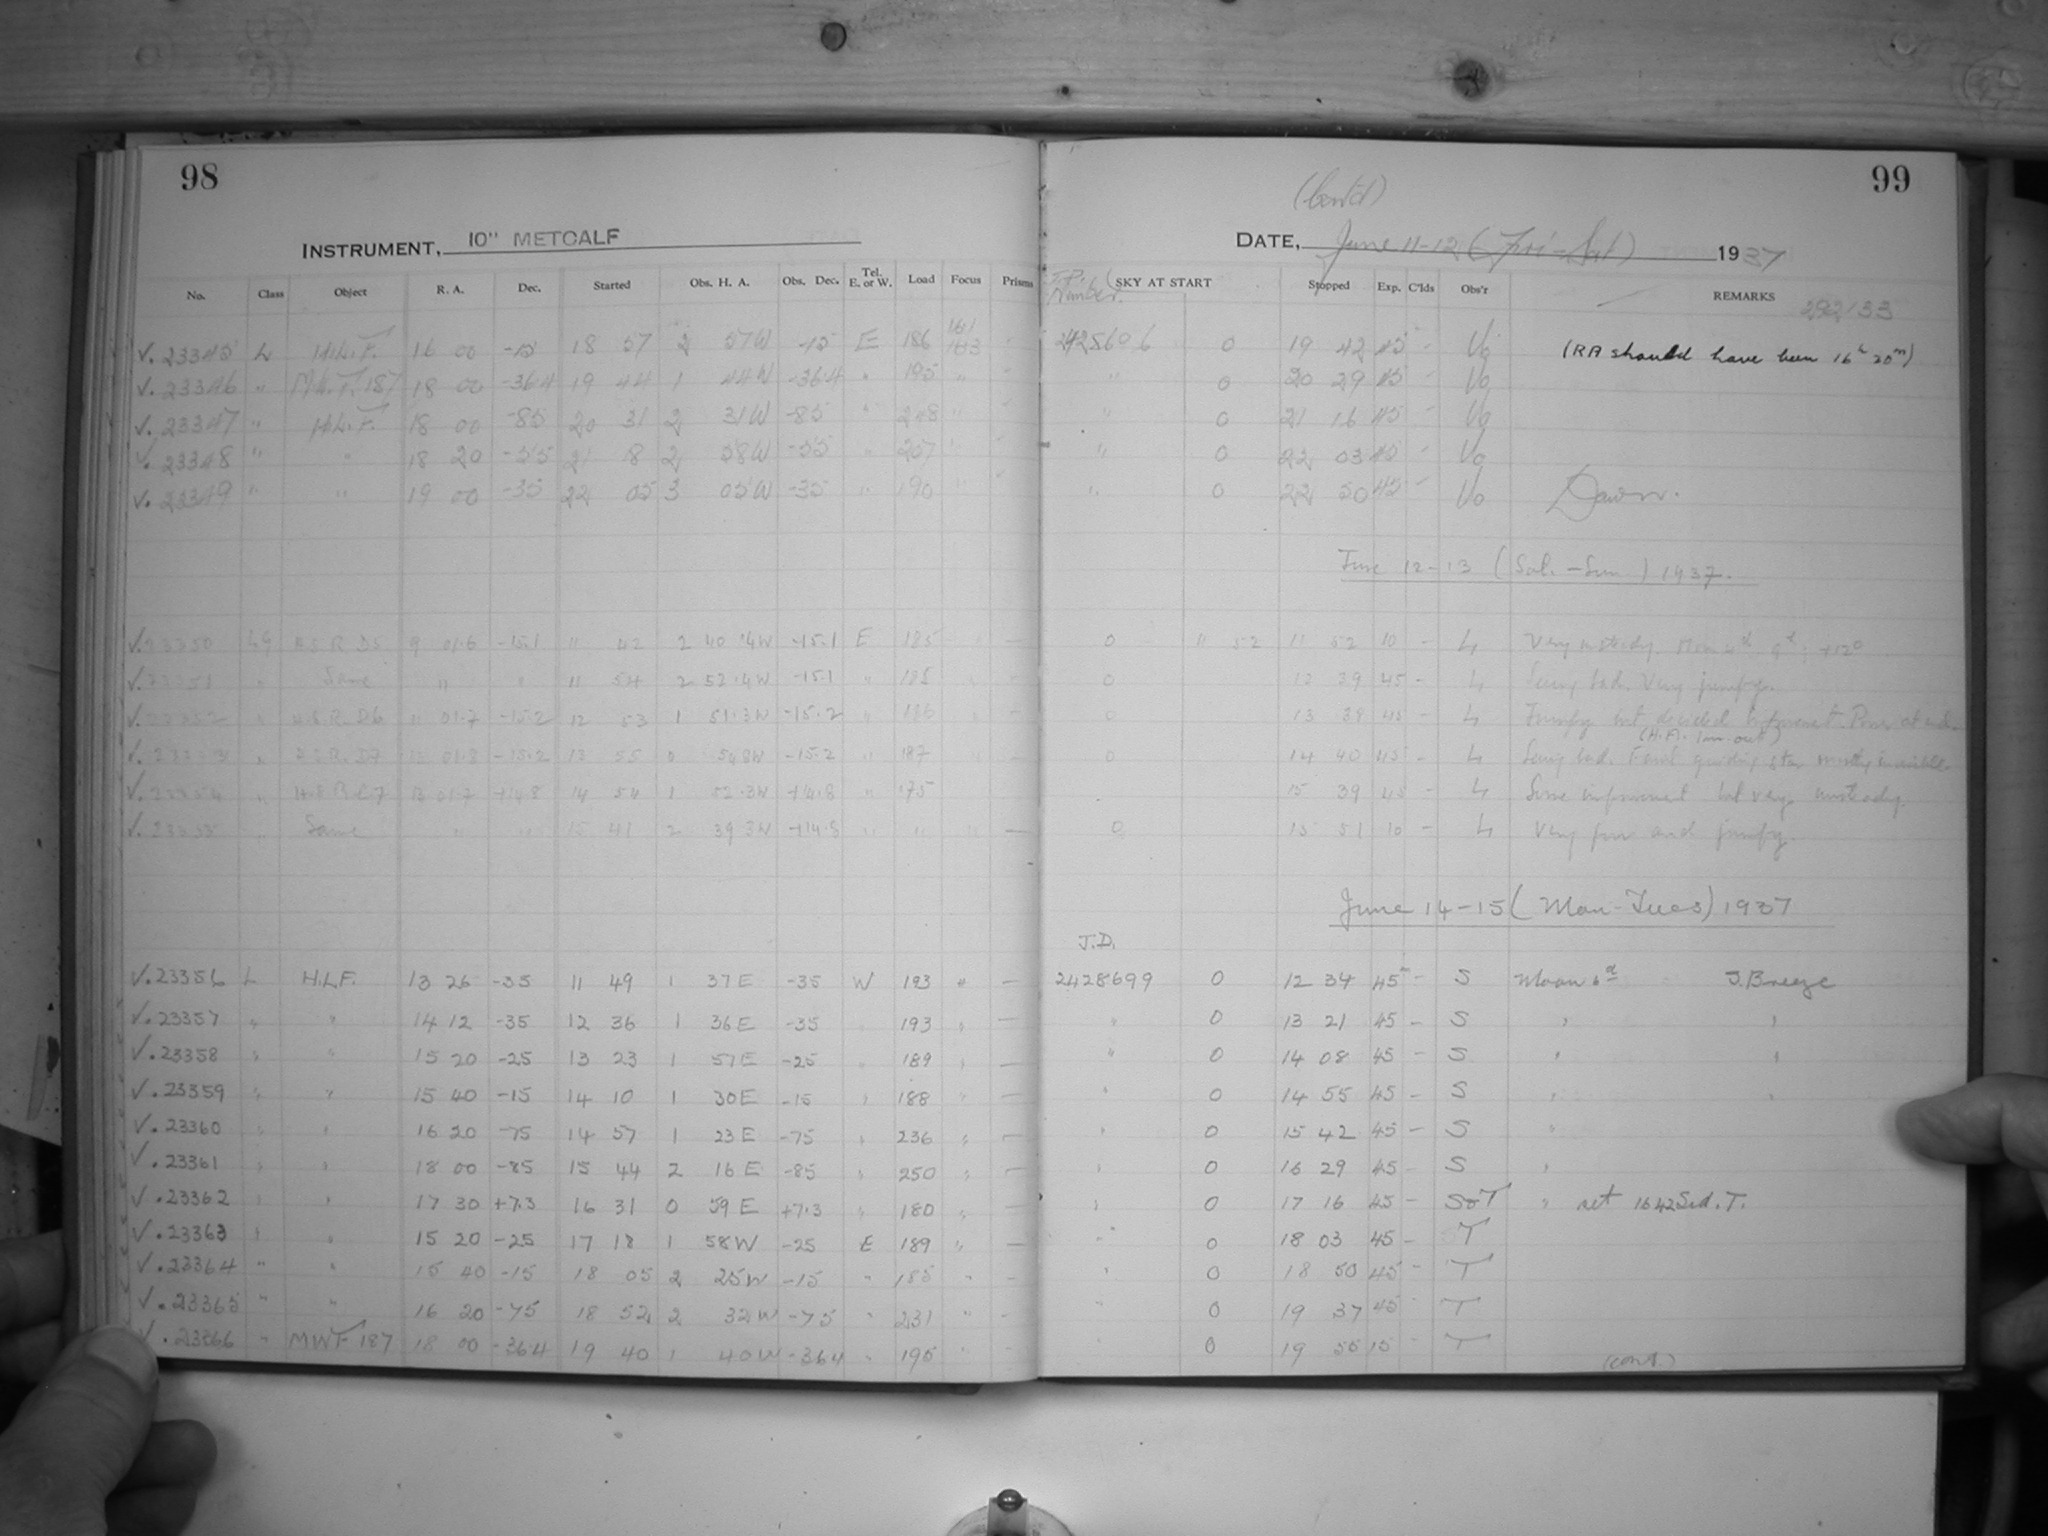 98
INSTRUMENT, 10" METCALF
No. Class Object R. A. Dec. Started Obs. H. A. Obs. Dec. Tel. E. or W. Load Focus Prisms
V. 23345 L H.L.F. 16 00 -15 18 57 2 57W -15 E 186
V. 23346 " 187 18 00 -36.4 19 44 1 44W -36.4 " 195 "
V. 23347 " H.L.F. 18 00 -85 20 31 2 31W -85 " 248 "
V. 23348 " " 18 20 -55 21 8 2 58W -55 " 207 "
V. 23349 " " 19 00 -35 22 05 3 05W -35 " 190 "
V. 23350 LG 9 01.6 -15.1 11 42 2 40.4W -15.1 E 185 " —
Same " " 11 54 2 52.4W -15.1 " 185
" 01.7 -15.2 12 53 1 51.3W -15.2 " 186
01.8 -15.2 13 55 0 -15.2 " 187
13 01.7 +14.8 14 54 1 52.3W +14.8 " 175
Same " " 15 41 2 39.3W +14.8 " " " —
V. 23356 L H.L.F. 13 26 -35 11 49 1 37E -35 W 193 " —
V. 23357 " " 14 12 -35 12 36 1 36E -35 193 " —
V. 23358 " " 15 20 -25 13 23 1 57E -25 189 " —
V. 23359 " " 15 40 -15 14 10 1 30E -15 " 188 " —
V. 23360 " " 16 20 -75 14 57 1 23E -75 " 236 " —
V. 23361 " " 18 00 -85 15 44 2 16E -85 " 250 " —
V. 23362 " " 17 30 +7.3 16 31 0 59E +7.3 " 180 " —
V. 23363 " " 15 20 -25 17 18 1 58W -25 E 189 " —
V. 23364 " " 15 40 -15 18 05 2 25W -15 " 185 " -
V. 23365 " " 16 20 -75 18 52 2 32W -75 " 231 " -
V. 23366 " MWF 187 18 00 -36.4 19 40 1 40W -36.4 " 195 " -
99
(Cont'd)
DATE, June 11-12 (Fri-Sat) 1937
J.D. Number. SKY AT START Stopped Exp. C'lds Obs'r REMARKS
0 19 42 45 - Vo (RA should have been 16h 20m)
" 0 20 29 45 - Vo
" 0 21 16 45 - Vo
" 0 22 03 45 - Vo
" 0 22 50 45 - Vo Dawn.
June 12-13 (Sat. - Sun) 1937.
0 11 52 11 52 10 - L Very unsteady.
0 12 39 45 - L Seeing bad. Very jumpy.
0 13 38 45 - L Jumpy but decided improvement.
(H.A. 1m out)
0 14 40 45 - L Seeing bad. Faint guiding star mostly invisible.
15 39 45 - L Some improvement but very unsteady.
0 15 51 10 - L Very poor and jumpy.
June 14-15 (Mon-Tues) 1937
J.D.
2428699 0 12 34 45 - S Moon 6d S. Breeze
" 0 13 21 45 - S " "
" 0 14 08 45 - S " "
" 0 14 55 45 - S " "
" 0 15 42 45 - S "
" 0 16 29 45 - S "
" 0 17 16 45 - S&T " set 1642 Sid. T.
" 0 18 03 45 - T
" 0 18 50 45 - T
" 0 19 37 45 - T
" 0 19 55 15 - T
(cont.)